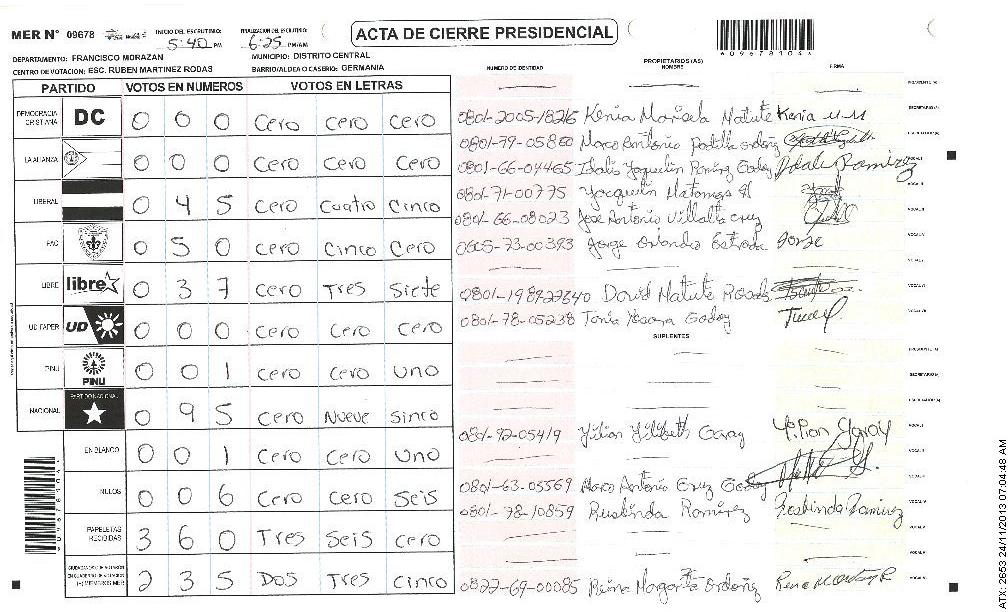 MER N° 09678 INICIO DEL ESCRUTINIO: 5:40 PM FINALIZACION DEL ESCRUTINIO: 6:25 PM/AM
ACTA DE CIERRE PRESIDENCIAL
09678104
DEPARTAMENTO: FRANCISCO MORAZAN MUNICIPIO: DISTRITO CENTRAL
CENTRO DE VOTACION: ESC. RUBEN MARTINEZ RODAS BARRIO/ALDEA O CASERIO: GERMANIA
NUMERO DE IDENTIDAD PROPIETARIOS (AS) NOMBRE FIRMA
PARTIDO VOTOS EN NUMEROS VOTOS EN LETRAS
DEMOCRACIA CRISTIANA DC 0 0 0 Cero Cero Cero
LA ALIANZA 0 0 0 Cero Cero Cero
LIBERAL 0 4 5 Cero Cuatro Cinco
PAC 0 5 0 Cero Cinco Cero
LIBRE libre 0 3 7 Cero Tres Siete
UD FAPER UD 0 0 0 Cero Cero Cero
PINU PINU 0 0 1 Cero Cero Uno
NACIONAL PARTIDO NACIONAL 0 9 5 Cero Nueve Sinco
EN BLANCO 0 0 1 Cero Cero Uno
NULOS 0 0 6 Cero Cero Seis
PAPELETAS RECIBIDAS 3 6 0 Tres Seis Cero
2 3 5 Dos Tres Cinco
0801-2005-18216 Kenia Marisela Matute Kenia M M
0801-79-05860 Marco Antonio Padilla Ordoñez
0801-66-04465 Idalis Yaquelin Ramirez Godoy Idalis Ramirez
0801-71-00775 Jacquelin Matamoros
0801-66-08023 Jose Antonio Villalta Cruz
0605-73-00393 Jorge Orlando Estrada Jorge
0801-198922640 David Matute Rosales
0801-78-05238 Tania Godoy
SUPLENTES
0801-92-05419 Yilian Yilibeth Garay
0801-63-05569 Marco Antonio Cruz Godoy
0801-78-10859 Ruslinda Ramirez
0822-69-00085 Reina Margarita Ordoñez
ATX 2653 24/11/2013 07:04:48 AM